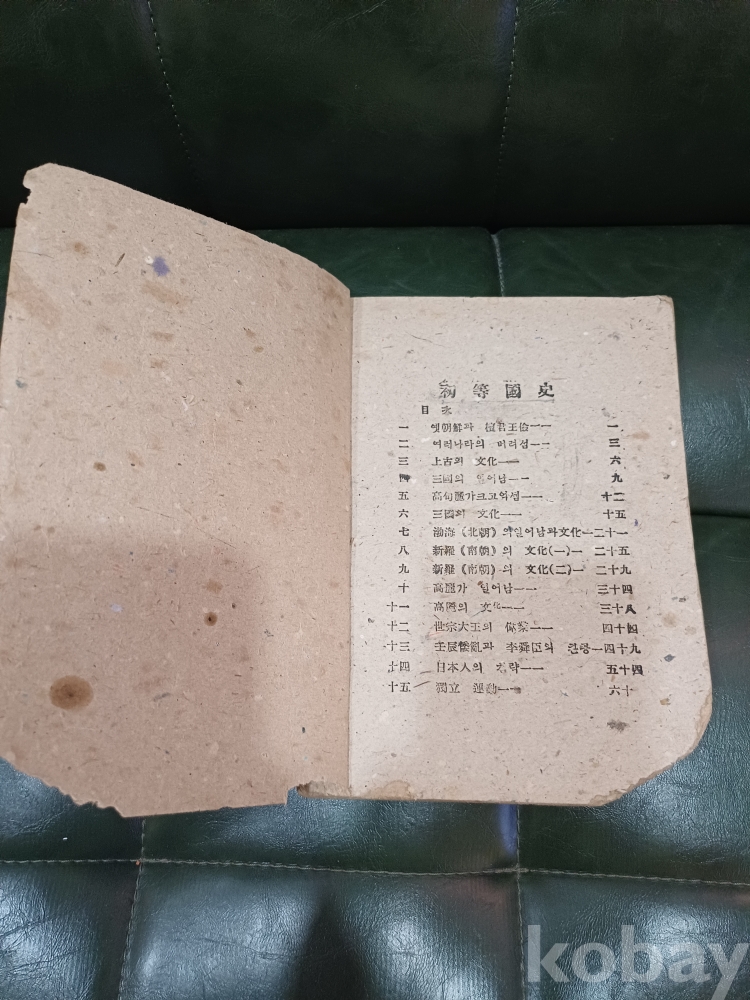 初等國史
目次
一 옛朝鮮과 檀君王儉 一
二 여러나라의 버려섬 三
三 上古의 文化 六
四 三國의 일어남 九
五 高句麗가크고억셈 十二
六 三國의 文化 十五
七 渤海《北朝》의일어남과文化 二十一
八 新羅《南朝》의 文化(一) 二十五
九 新羅《南朝》의 文化(二) 二十九
十 高麗가 일어남 三十四
十一 高麗의 文化 三十八
十二 世宗大王의 偉業 四十四
十三 壬辰倭亂과 李舜臣의 四十九
十四 日本人의 五十四
十五 獨立 運動 六十
kobay